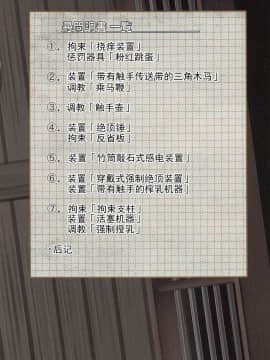 ①、拘束「挠痒装置」
惩罚器具「粉红跳蛋」
②、装置「带有触手传送带的三角木马」
调教「乘马鞭」
③、调教「触手壶」
④、装置「绝顶锤」
拘束「反省板」
⑤、装置「竹筒敲石式感电装置」
⑥、装置「穿戴式强制绝顶装置」
装置「带有触手的榨乳机器」
⑦、拘束「拘束支柱」
装置「活塞机器」
调教「强制授乳」
·后记